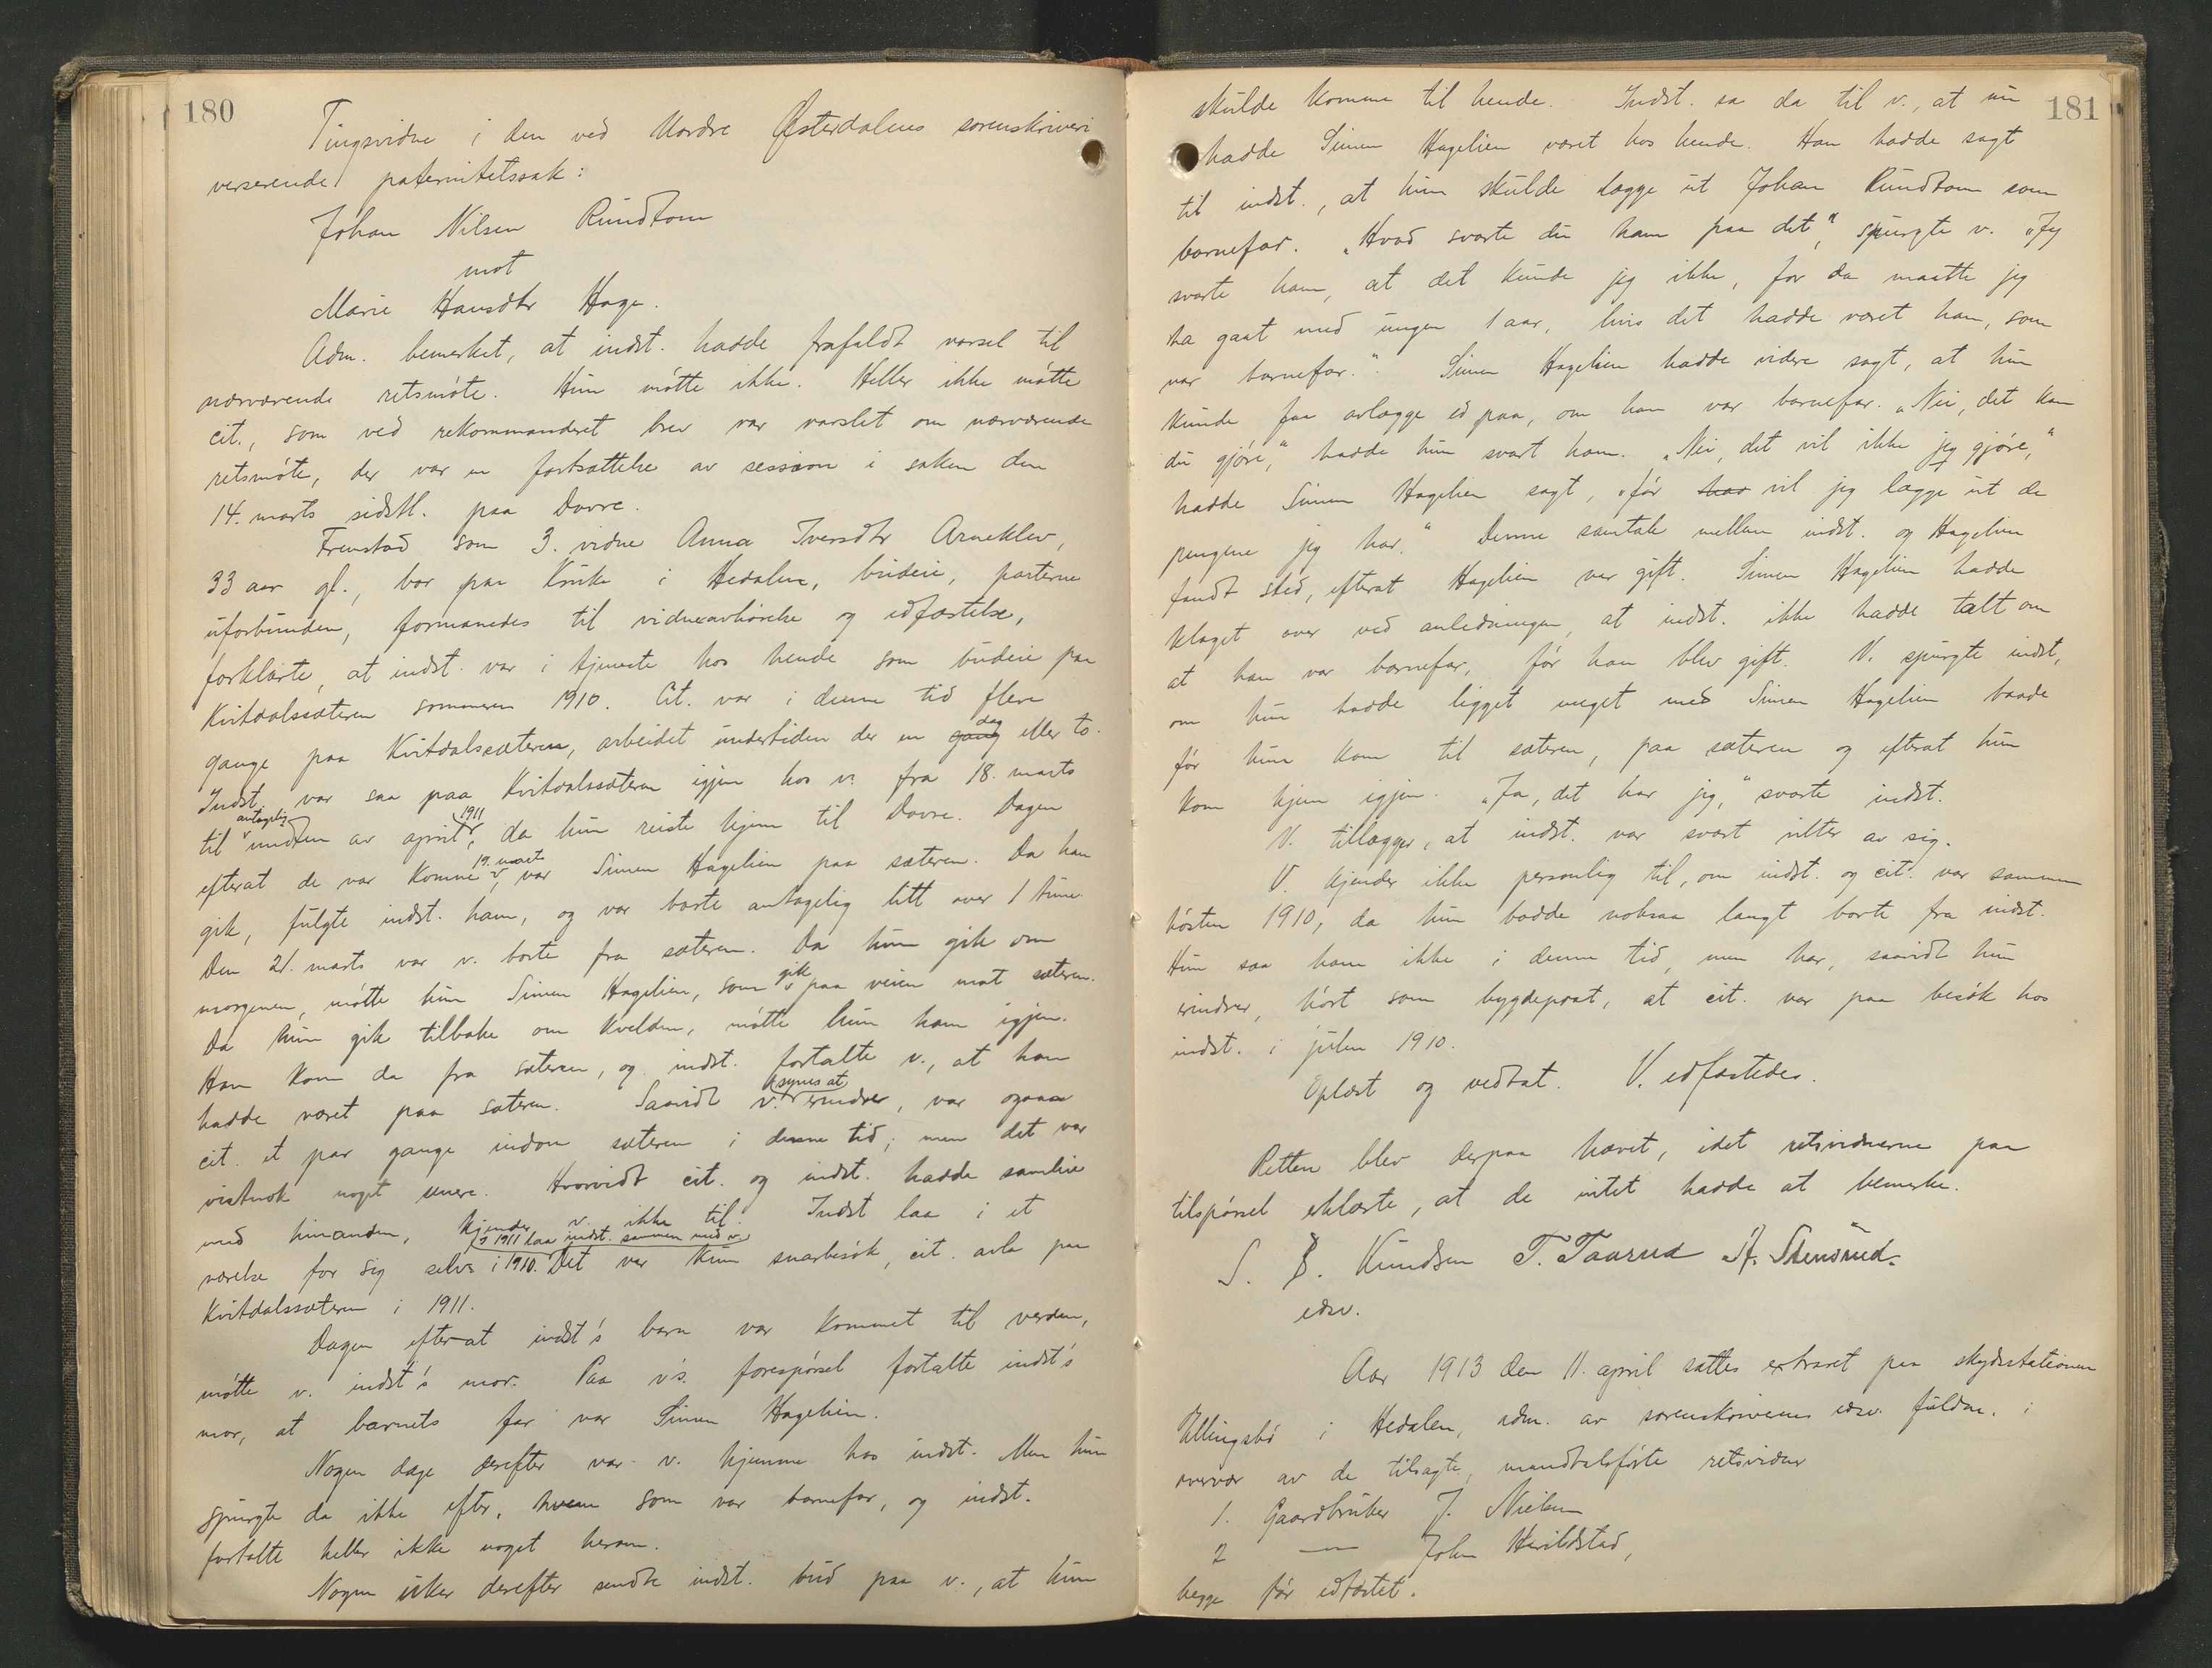 180
Tingsvidne i den ved Nordre Østerdalens sorenskriveri
verserende paternitetssak:
Johan Nilsen Rundtom
mot
Marie Hansdtr Hage.
Adm. bemerket, at indst. hadde frafaldt varsel til
nærværende retsmöte. Hun mötte ikke. Heller ikke mötte
cit., som ved rekommanderet brev var varslet om nærværende
retsmöte, der var en fortsættelse av sessionen i saken den
14. marts sidstl. paa Dovre.
Fremstod som 3. vidne Anna Iversdtr Arneklev,
33 aar gl., bor paa Kruke i Hedalen, budeie, parterne
uforbunden, formanedes til vidneavhörelse og edfæstelse,
forklarte, at indst. var i tjeneste hos hende som budeie paa
Kvitdalssæteren sommeren 1910. Cit. var i denne tid flere
gange paa Kvitdalssæteren, arbeidet undertiden der en gang dag eller to.
Indst. var saa paa Kvitdalssæteren igjen hos v. fra 18. marts
til antagelig midten av april 1911, da hun reiste hjem til Dovre. Dagen
efterat de var komne 19. marts, var Simen Hagelien paa sæteren. Da han
gik, fulgte indst. ham, og var borte antagelig litt over 1 time.
Den 21. marts var v. borte fra sæteren. Da hun gik om
morgenen, mötte hun Simen Hagelien, som gik paa veien mot sæteren.
Da hun gik tilbake om kvelden, mötte hun ham igjen.
Han kom da fra sæteren, og indst. fortalte v., at han
hadde været paa sæteren. Saavidt v. synes at erindre, var ogsaa
cit. et par gange indom sæteren i denne tid; men det var
vistnok noget senere. Hvorvidt cit. og indst. hadde samleie
med hinanden, kjender v. ikke til. Indst laa i et
værelse for sig selv i 1910. I 1911 laa indst. sammen med v. Det var kun snarbesök, cit. avla paa
Kvitdalssæteren i 1911.
Dagen efterat indst's barn var kommet til verden,
mötte v. indst's mor. Paa v's. forespörsel fortalte indst's
mor, at barnets far var Simen Hagelien.
Nogen dage derefter var v. hjemme hos indst. Men hun
spurgte da ikke efter, hvem som var barnefar, og indst.
fortalte heller ikke noget herom.
Nogen uker derefter sendte indst. bud paa v., at hun
181
skulde komme til hende. Indst. sa da til v., at nu
hadde Simen Hagelien været hos hende. Han hadde sagt
til indst., at hun skulde lægge ut Johan Rundtom som
barnefar. „Hvad svarte du ham paa det", spurgte v. „Jeg
svarte ham, at det kunde jeg ikke, for da maatte jeg
ha gaat med ungen 1 aar, hvis det hadde været han, som
var barnefar." Simen Hagelien hadde videre sagt, at hun
kunde faa avlægge ed paa, om han var barnefar. „Nei, det kan
du gjöre," hadde hun svart ham. „Nei, det vil ikke jeg gjöre,"
hadde Simen Hagelien sagt, „för har vil jeg lægge ut de
pengene jeg har." Denne samtale mellem indst. og Hagelien
fandt sted, efterat Hagelien var gift. Simen Hagelien hadde
klaget over ved anledningen, at indst. ikke hadde talt om
at han var barnefar, för han blev gift. V. spurgte indst,
om hun hadde ligget meget med Simen Hagelien baade
för hun kom til sæteren, paa sæteren og efterat hun
kom hjem igjen. „Ja, det har jeg," svarte indst.
V. tillægger, at indst. var svært vilter av sig.
V. kjender ikke personlig til, om indst. og cit. var sammen
hösten 1910, da hun bodde noksaa langt borte fra indst.
Hun saa ham ikke i denne tid, men har, saavidt hun
erindrer, hört som bygdeprat, at cit. var paa besök hos
indst. i julen 1910.
Oplæst og vedtat. V. edfæstedes.
Retten blev derpaa hævet, idet retsvidnerne paa
tilspörsel erklærte, at de intet hadde at bemerke.
S. B. Knudsen T. Taarud A. Stensrud.
edsv.
Aar 1913 den 11. april sattes extraret paa skydsstationen
Ullingsbö i Hedalen, adm. av sorenskriverens edsv. fuldm. i
overvær av de tilsagte, mandtalsförte retsvidner
1. Gaardbruker J. Nielsen
2 — John Heirildstad,
begge för edfæstet.